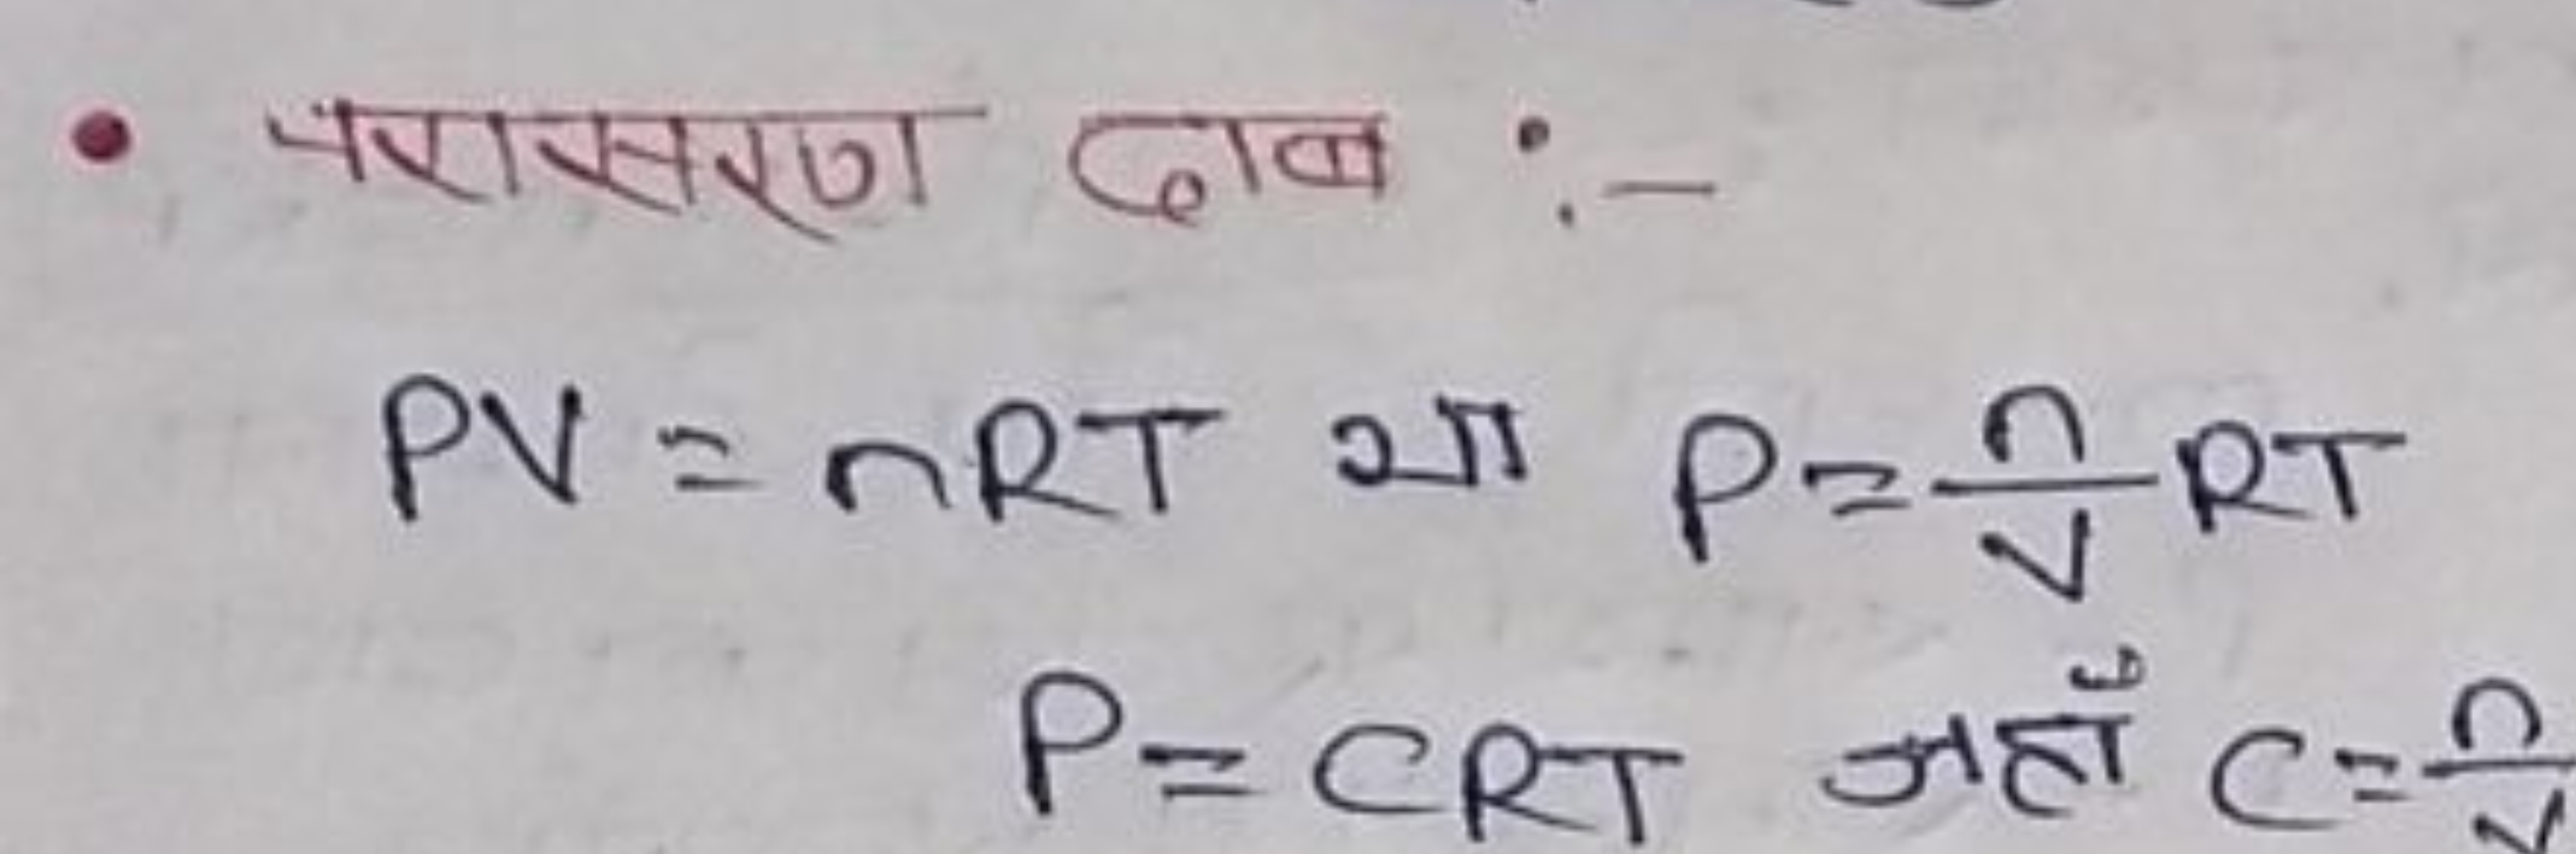 • परासरण दाब :-
PV = nRT या P = n/V RT
P = CRT जहाँ C = n/V